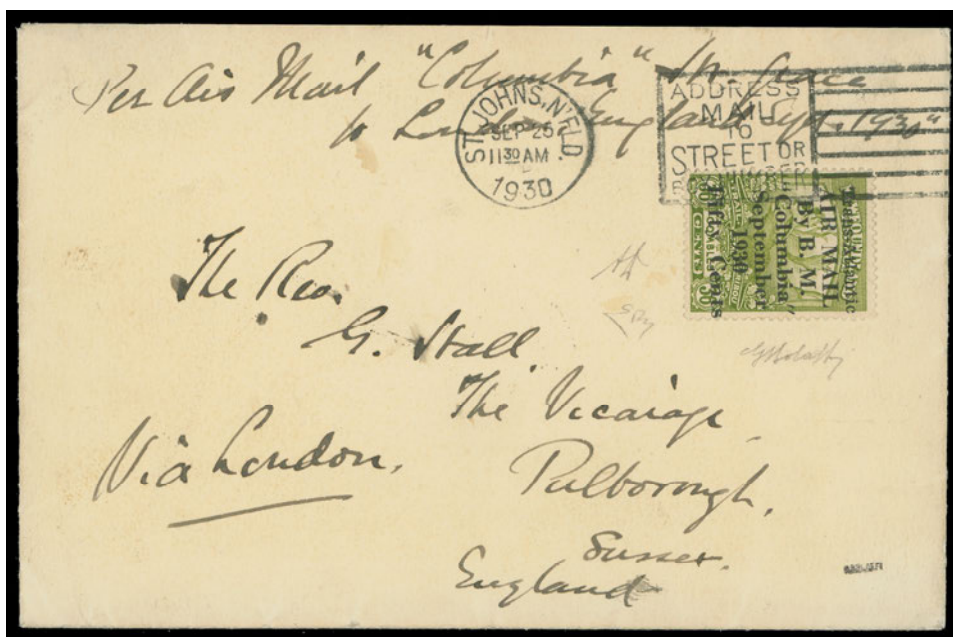 Per Air Mail "Columbia" Hr. Grace
to London England Sept. 1930"
ST. JOHNS, N'FLD.
SEP 25
11 30 AM
1930
ADDRESS
MAIL
TO
STREET OR
Trans-Atlantic
AIR MAIL
By B. M.
"Columbia"
September
1930
Fifty Cents
The Rev.
G. Stall
The Vicarage
Pulborough,
Sussex.
England
Via London.